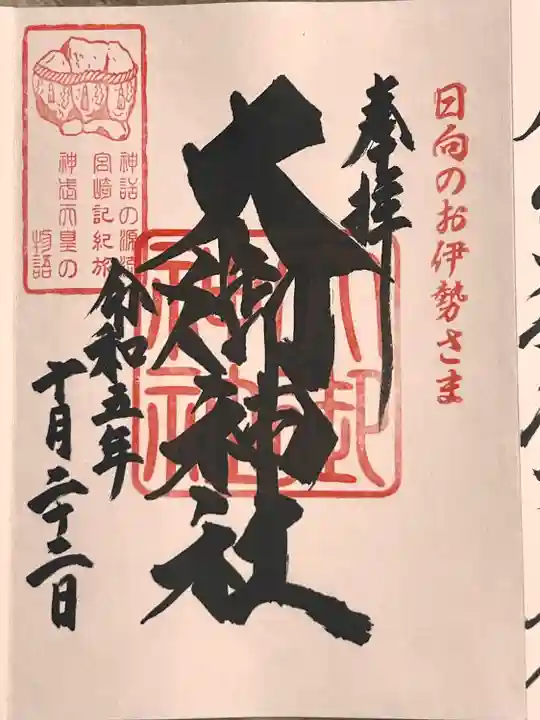 日向のお伊勢さま
奉拝
大御神社
令和五年
十月二十二日
神話の源流
宮崎記紀旅
神武天皇の
物語